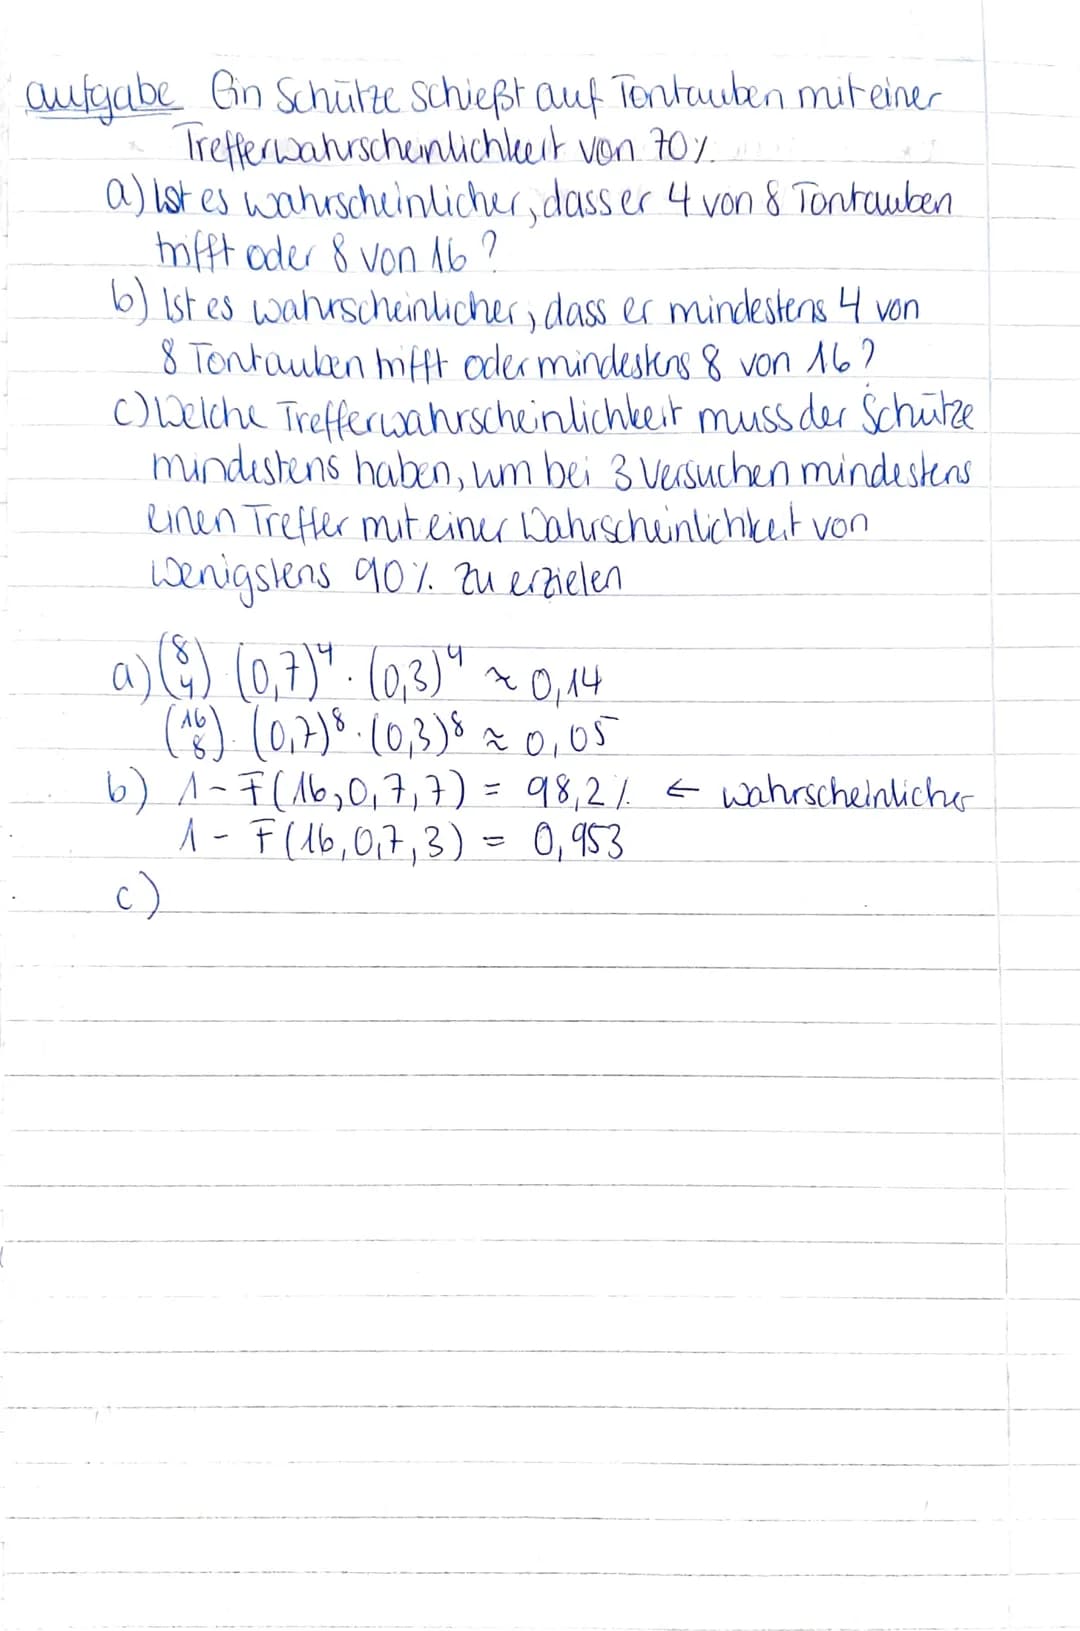 Aufgabe Ein Schütze schießt auf Tontauben mit einer
Trefferwahrscheinlichkeit von 70%.
a) Ist es wahrscheinlicher, dass er 4 von 8 Tontauben
trifft oder 8 von 16?
b) Ist es wahrscheinlicher, dass er mindestens 4 von
8 Tontauben trifft oder mindestens 8 von 16?
c) Welche Trefferwahrscheinlichkeit muss der Schütze
mindestens haben, um bei 3 Versuchen mindestens
einen Treffer mit einer Wahrscheinlichkeit von
wenigstens 90% zu erzielen
a) (8 4) (0,7)⁴ · (0,3)⁴ ≈ 0,14
(16 8) · (0,7)⁸ · (0,3)⁸ ≈ 0,05
b) 1 - F(16,0,7,7) = 98,2% ← wahrscheinlicher
1 - F(16,0,7,3) = 0,953
c)